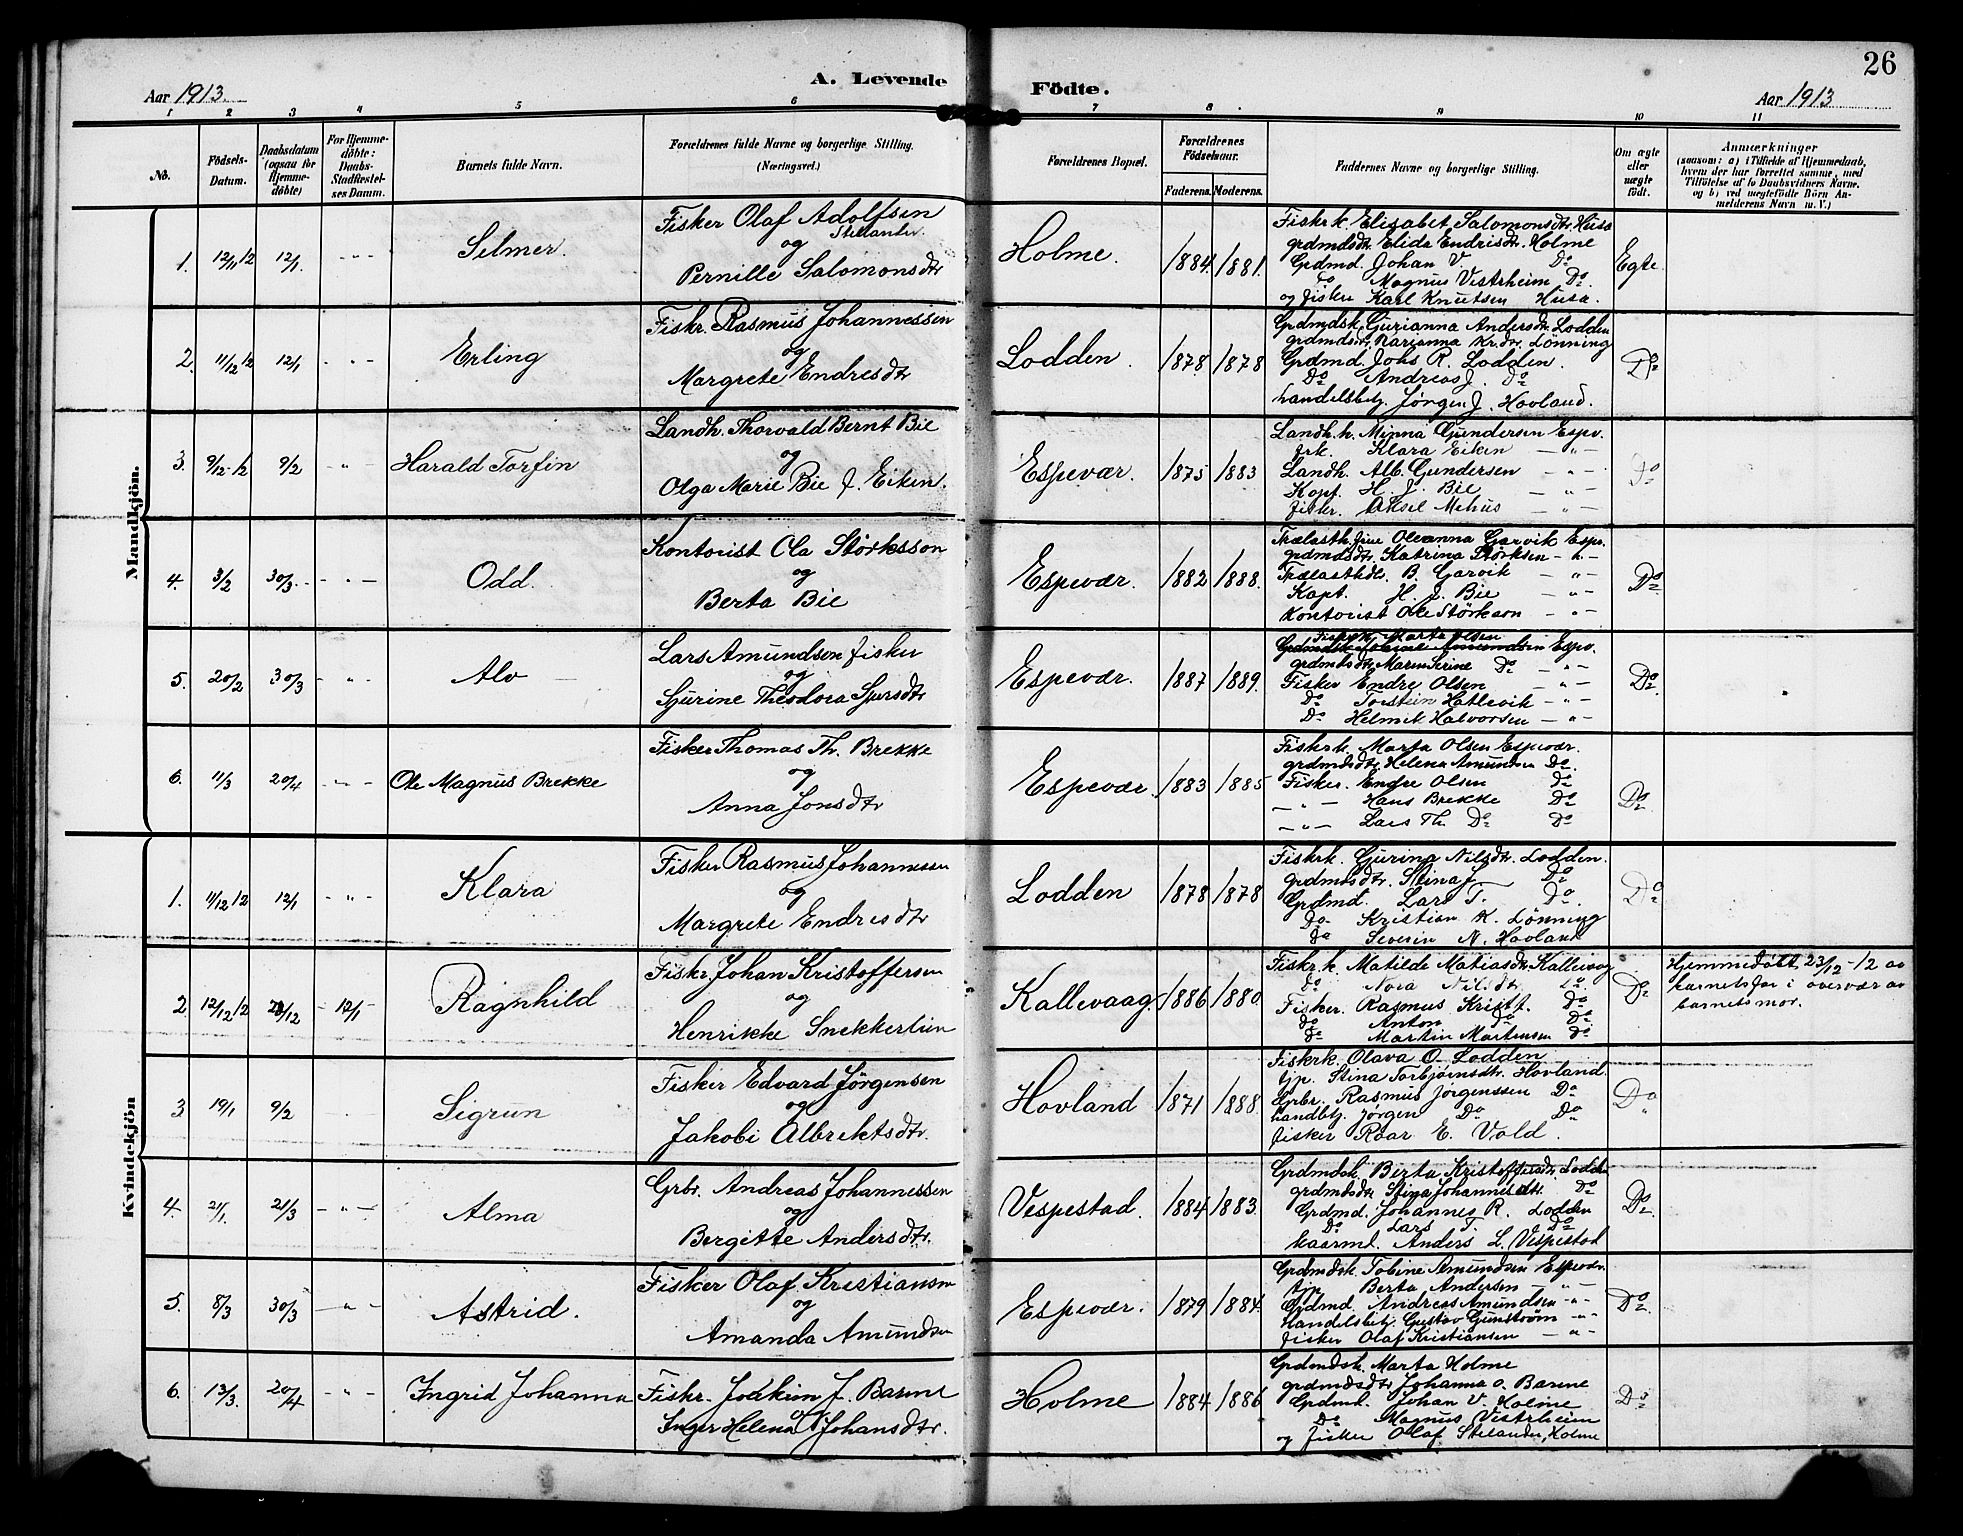 26
A. Levende Födte.
Aar 1913.
Aar 1913
1 2 3 4 5 6 7 8. 9 10 11
No.
Födsels-
Datum.
Daabsdatum
(ogsaa for
Hjemme-
döbte)
For Hjemme-
döbte:
Daabs-
Stadfæstel-
ses Datum.
Barnets fulde Navn.
Forældrenes fulde Navne og borgerlige Stilling.
(Næringsvei.)
Forældrenes Bopæl.
Forældrenes
Födselsaar.
Faderens. Moderens.
Faddernes Navne og borgerlige Stilling.
Om ægte
eller
uægte
födt.
Anmærkninger
(saasom: a) i Tilfælde af Hjemmedaab,
hvem der har forrettet samme, med
Tilföielse af to Daabsvidners Navne.
og b) ved uægtefödte Börn An-
melderens Navn m. V.)
Mandkjön.
1. 12/11 12 12/1. - " - Selmer.
Fisker Olaf Adolfsen
Stelander.
og
Pernille Salomonsdtr
Holme. 1884. 1881.
Fiskrk. Elisabet Salomonsdtr. Husa
grdmdsdtr. Elida Endrisdtr. Holme
Grdmd. Johan V. Do
Do Magnus Vestrheim Do.
og fisker Karl Knutsen Husa.
Egte.
2. 11/12 12 12/1 - " - Erling
Fiskr. Rasmus Johannessen
og
Margrete Endresdtr
Lodden. 1878 1878
Grdmdsk. Gurianna Andersdtr. Lodden
grdmdsdtr. Karianna Kr.dtr. Lönning
Grdmd. Johs R. Lodden.
Do Andreas J. Do
handelsbetj. Jörgen J. Hovland.
Do
3. 9/12-12 9/2 - " - Harald Torfin
Landh. Thorvald Bernt Bie
og
Olga Marie Bie f. Eiken.
Espevær. 1875 1883
Landh. h. Minna Gundersen Espv.
frk. Klara Eiken - " -
Landh. Alb. Gundersen - " -
Kapt. H. J. Bie - " -
fiskr. Aksel Mehus - " -
Do
4. 3/2 30/3. - " - Odd.
Kontorist Ola Störksson
og
Berta Bie
Espevær. 1882 1888.
Trælasth. frue Oleanna Garvik Espv.
grdmdsdtr. Katrina Störksen - " -
Trælasthdl. B. Garvik - " -
Kapt. H. J. Bie - " -
Kontorist Ole Störkson - " -
Do
5. 20/2 30/3 - " - Alv
Lars Amundsen fisker
og
Gjurine Theodora Sjursdtr
Espevær. 1887 1889.
Fiskrk. Marta Olsen
Grdmdsk. Tobine Amundsen Espv.
grdmdsdtr. Maren Serine Do - " -
Fisker Endre Olsen - " -
Do Torstein Hatlevik - " -
Do Helmik Halvorsen - " -
Do
6. 11/3 20/4 - " - Ole Magnus Brekke
Fisker Thomas Th. Brekke
og
Anna Jonsdtr
Espevær. 1883 1885
Fiskrk. Marta Olsen Espevær.
grdmdsdtr. Helena Amundsen Do.
Fisker. Endre Olsen Do
- " - Hans Brekke Do
- " - Lars Th. Do Do
Do
Kvindekjön
1. 11/12 12 12/1 - " - Klara
Fisker Rasmus Johannessen
og
Margrete Endresdtr
Lodden 1878 1878
Fiskrk. Gjurina Nilsdtr. Lodden.
grdmdsdtr. Stina J. Do
Grdmd. Lars T. Do.
Do Kristian K. Lönning
Do Severin N. Hovland
Do
2. 12/12 12 23/12 - 12/1 - Ragnhild
Fiskr. Johan Kristoffersen
og
Henrikke Snekkerlien
Kallevaag. 1886 1880.
Fiskr. k. Matilde Matiasdtr. Kallevaag
Do Nora Nilsdtr. Do.
Fisker. Rasmus Kristf. Do
Do Anton Do Do
Do Martin Martensen Do
Do
Hjemmedöbt 23/12-12 av
barnets far i overvær av
barnets mor.
3 19/1 9/2 Sigrun
Fisker Edvard Jörgensen
og
Jakobi Albrektsdtr.
Hovland 1871 1888.
Fiskrk. Olava O. Lodden
tjp. Stina Torbjörnsdtr. Hovland
Grbr. Rasmus Jörgenssen Do
handbetj. Jörgen Do Do
fisker Roar E. Vold.
Do
4. 21/1. 21/3 - " - Alma
Grbr. Andreas Johannessen
og
Bergitte Andersdtr.
Vespestad. 1884 1883.
Grdmdsk. Berta Kristoffersdtr. Lodden
grdmdsdtr. Stina Johannesdtr. Do
Grdmd. Johannes R. Lodden
Do Lars T. Do
kaarmd. Anders L. Vespestad
Do
5. 8/3 30/3 - " - Astrid.
Fisker Olaf Kristiansen
og
Amanda Amundsen
Espevær. 1879 1884.
Grdmdsk. Tobine Amundsen Espevær
tjp Berta Andersen - " -
Grdmd. Andreas Amundsen - " -
Handelsbetj. Gustav Gunström - " -
fisker Olaf Kristiansen - " -
Do
6. 13/3. 20/4 - " - Ingrid Johanna
Fiskr. Joakim J. Basme
og
Inger Helena Johansdtr.
Holme 1884 1886
Grdmdsk. Marta Holme
grdmdsdtr Johanna O. Barene
Grdmd. Johan V. Holme
Do Magnus Vestrheim
og fisker Olaf Stelander, Holme
Do